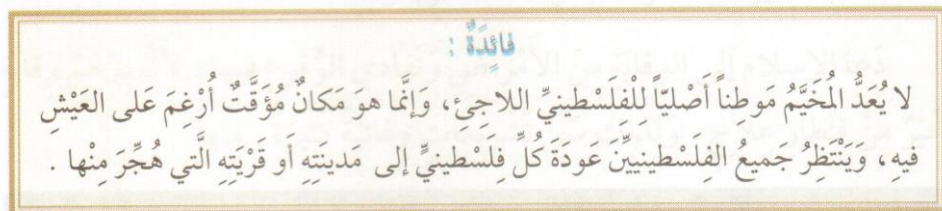 فائِدَةٌ :
لا يُعَدُّ المُخَيَّمُ مَوطناً أَصْليّاً لِلْفَلَسْطينيِّ اللاجئ، وَإنما هوَ مَكانٌ مُؤَقَّتٌ أُرْغِمَ عَلى العَيْشِ
فيهِ، وَيَنْتَظِرُ جَميعُ الفِلَسْطينيينَ عَودَةَ كُلِّ فِلَسْطينيٍّ إلى مَدينَتِهِ أَو قَرْيَتِهِ الَّتي هُجِّرَ مِنْها .